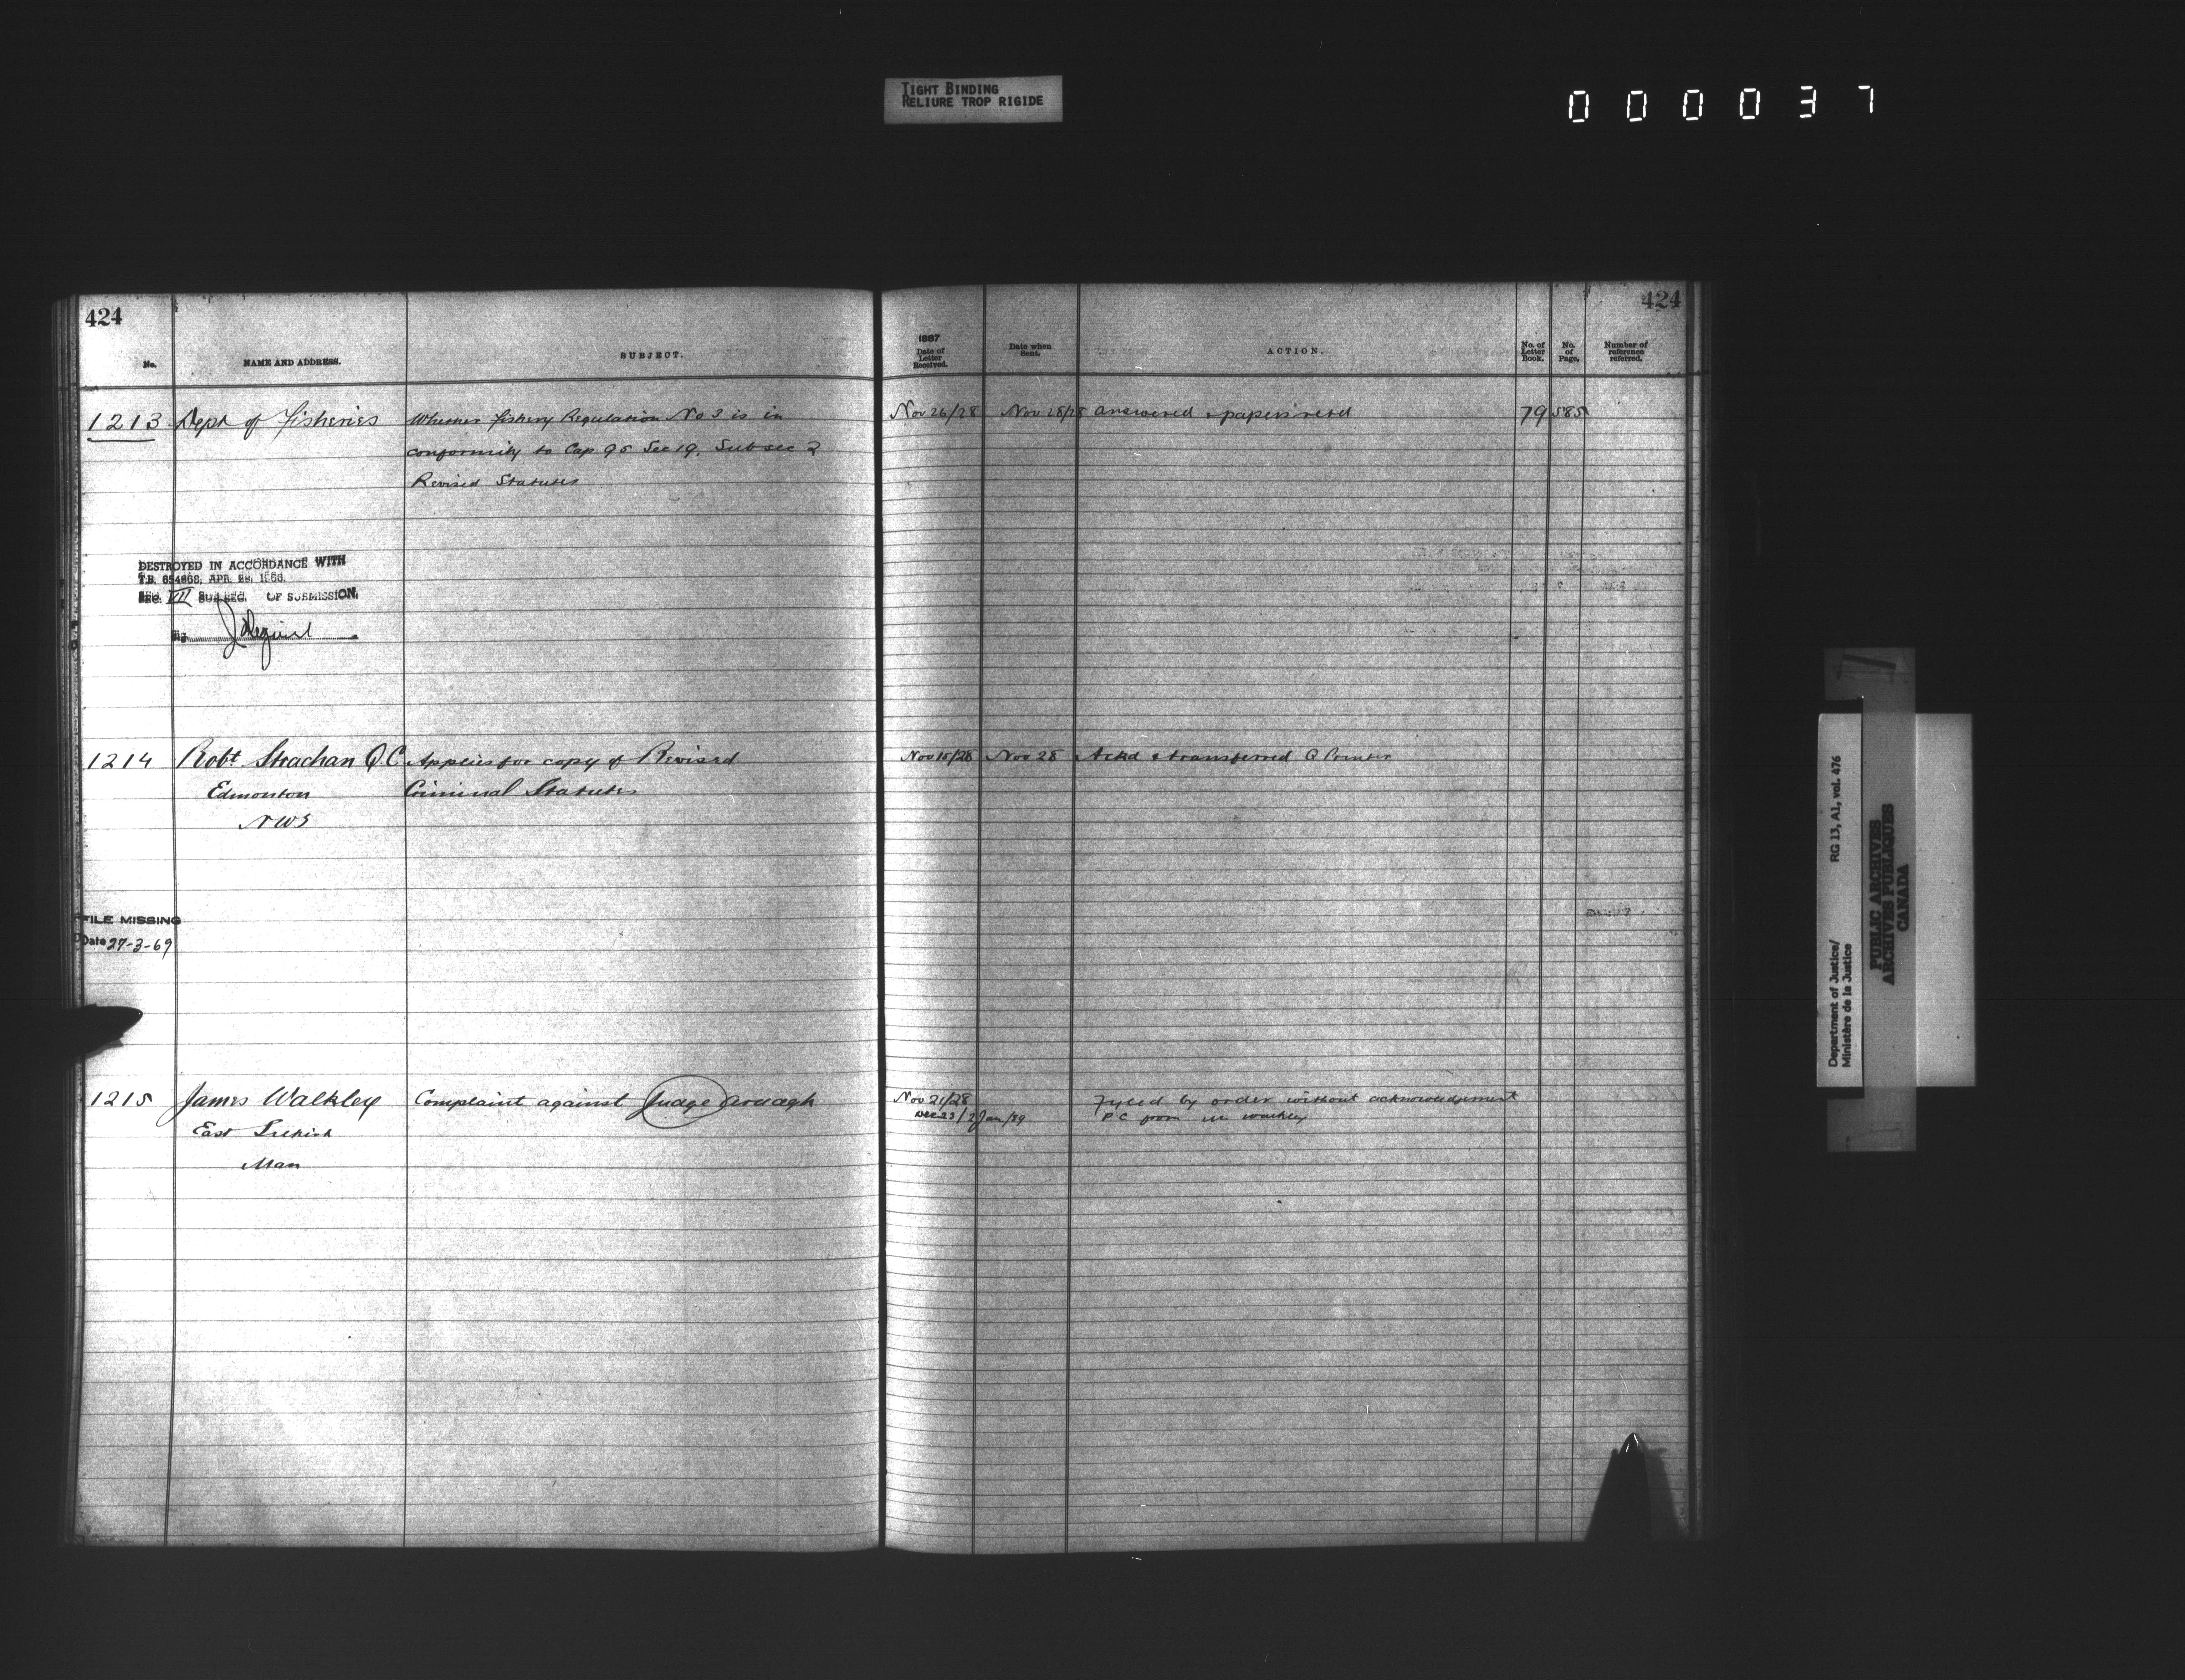 TIGHT BINDING
RELIURE TROP RIGIDE
000037
424
No.
NAME AND ADDRESS.
SUBJECT.
1213 Dept of Fisheries Whether Fishery Regulation No 3 is in
conformity to Cap 95 Sec 19. Subsec 2
Revised Statutes
DESTROYED IN ACCORDANCE WITH
T.B. 654868, APR. 1966.
SEC. VII SUBSEC. OF SUBMISSION.
1214 Robt Strachan Q.C. Applies for copy of Revised
Edmonton Criminal Statutes
NWT
FILE MISSING
Date 27-3-69
1215 James Walkley Complaint against Judge Ardagh
East Selkirk
Man
424
1887
Date of
Letter
Received.
Date when
Sent.
ACTION.
No. of
Letter
Book.
No.
of
Page.
Number of
reference
referred.
Nov 26/28 Nov 28/28 Answered & papers retd 79 585
Nov 15/28 Nov 28 Ackd & transferred Q Printer
Nov 21/28 Fyled by order without acknowledgement
Dec 23/2 Jan/89 P C from Walkley
Department of Justice/
Ministère de la Justice
RG 13, A1, vol. 476
PUBLIC ARCHIVES
ARCHIVES PUBLIQUES
CANADA